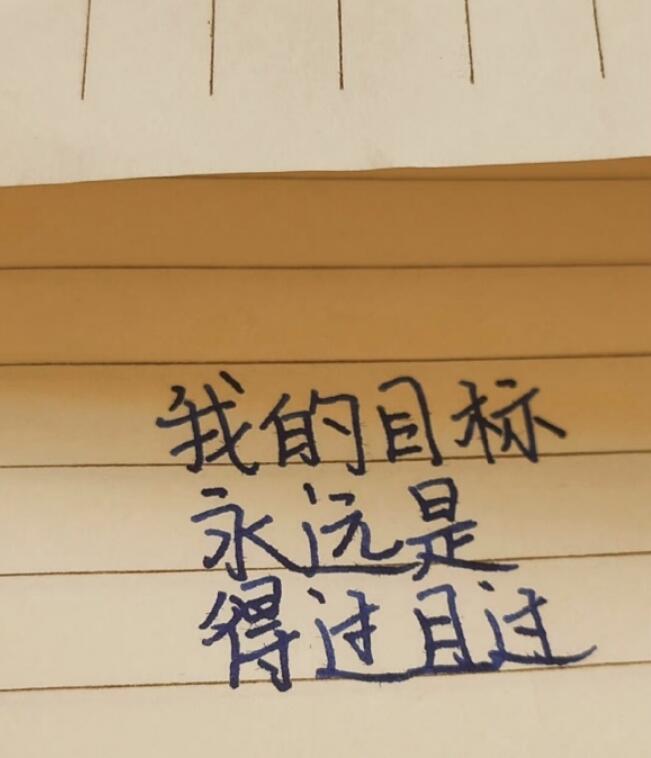 我的目标
永远是
得过且过